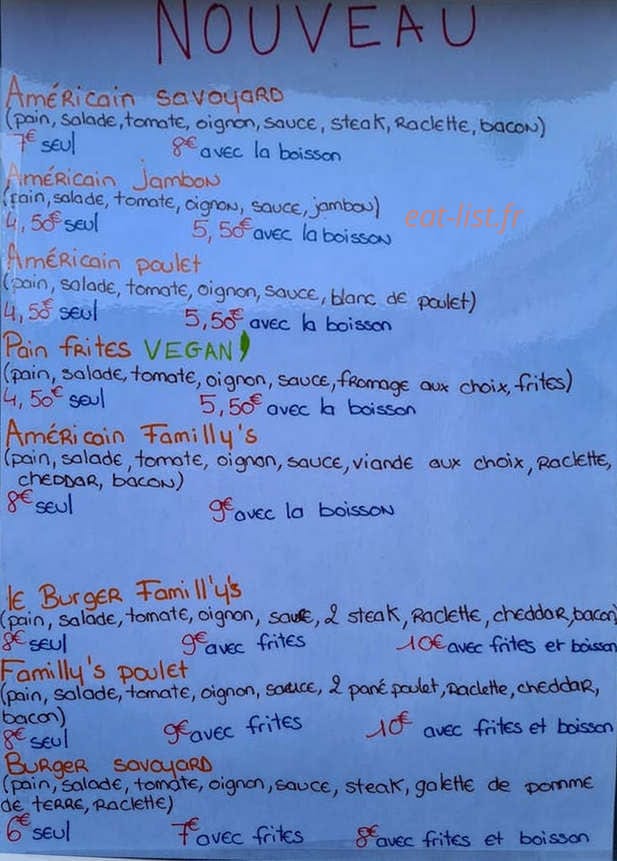 NOUVEAU
Américain savoyard
(pain, salade, tomate, oignon, sauce, steak, Raclette, bacon)
7€ seul 8€ avec la boisson
Américain Jambon
(pain, salade, tomate, oignon, sauce, jambon)
eat-list.fr
4,50€ seul 5,50€ avec la boisson
Américain poulet
(pain, salade, tomate, oignon, sauce, blanc de poulet)
4,50€ seul 5,50€ avec la boisson
Pain frites VEGAN
(pain, salade, tomate, oignon, sauce, fromage aux choix, frites)
4,50€ seul 5,50€ avec la boisson
Américain Familly's
(pain, salade, tomate, oignon, sauce, viande aux choix, Raclette,
cheddar, bacon)
8€ seul 9€ avec la boisson
le Burger Famill'y's
(pain, salade, tomate, oignon, sauce, 2 steak, Raclette, cheddar, bacon)
8€ seul 9€ avec frites 10€ avec frites et boisson
Familly's poulet
(pain, salade, tomate, oignon, sauce, 2 pané poulet, Raclette, cheddar,
bacon)
8€ seul 9€ avec frites 10€ avec frites et boisson
Burger savoyard
(pain, salade, tomate, oignon, sauce, steak, galette de pomme
de terre, Raclette)
6€ seul 7€ avec frites 8€ avec frites et boisson